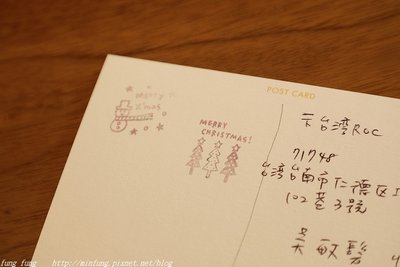 Merry
X'mas
MERRY
CHRISTMAS!
POST CARD
台湾 ROC
71748
台湾台南市仁德区
102巷3號
吴敏
fung fung http://minfung.pixnet.net/blog